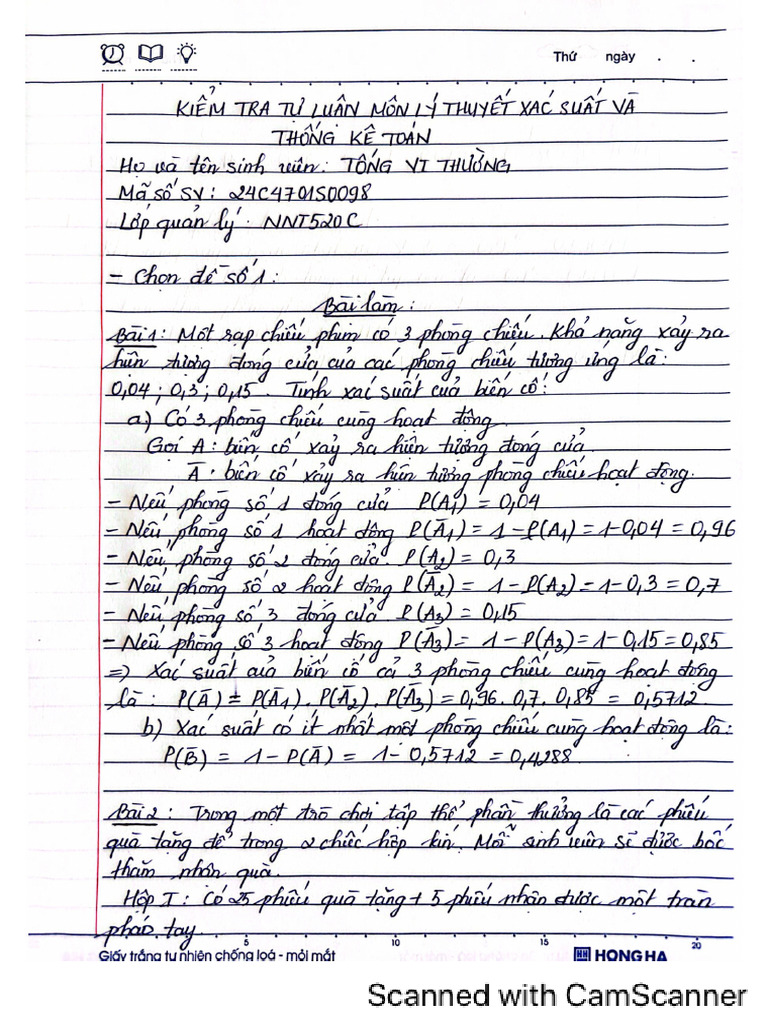 Thứ ngày . .
KIỂM TRA TỰ LUẬN MÔN LÝ THUYẾT XÁC SUẤT VÀ
THỐNG KÊ TOÁN
Họ và tên sinh viên: TỐNG VI THƯỜNG
Mã số SV: 24C4701S0098
Lớp quản lý: NNT520C
- Chọn đề số 1:
Bài làm:
Bài 1: Một rạp chiếu phim có 3 phòng chiếu. Khả năng xảy ra
hiện tượng đóng cửa của các phòng chiếu tương ứng là:
0,04; 0,3; 0,15. Tính xác suất của biến cố:
a) Có 3 phòng chiếu cùng hoạt động
Gọi A: biến cố xảy ra hiện tượng đóng cửa.
Ā: biến cố xảy ra hiện tượng phòng chiếu hoạt động.
- Nếu phòng số 1 đóng cửa P(A₁) = 0,04
- Nếu phòng số 1 hoạt động P(Ā₁) = 1 - P(A₁) = 1-0,04 = 0,96
- Nếu phòng số 2 đóng cửa. P(A₂) = 0,3
- Nếu phòng số 2 hoạt động P(Ā₂) = 1 - P(A₂) = 1 - 0,3 = 0,7
- Nếu phòng số 3 đóng cửa P(A₃) = 0,15
- Nếu phòng số 3 hoạt động P(Ā₃) = 1 - P(A₃) = 1 - 0,15 = 0,85
=) Xác suất của biến cố cả 3 phòng chiếu cùng hoạt động
là: P(Ā) = P(Ā₁). P(Ā₂). P(Ā₃) = 0,96. 0,7. 0,85 = 0,5712.
b) Xác suất có ít nhất một phòng chiếu cùng hoạt động là:
P(B̄) = 1 - P(Ā) = 1 - 0,5712 = 0,4288.
Bài 2: Trong một trò chơi tập thể phần thưởng là các phiếu
quà tặng để trong 2 chiếc hộp kín. Mỗi sinh viên sẽ được bốc
thăm nhận quà.
Hộp I: Có 25 phiếu quà tặng + 5 phiếu nhận được một tràn
pháo tay.
5 10 15 20
Giấy trắng tự nhiên chống loá - mỏi mắt HH HONG HA
Scanned with CamScanner